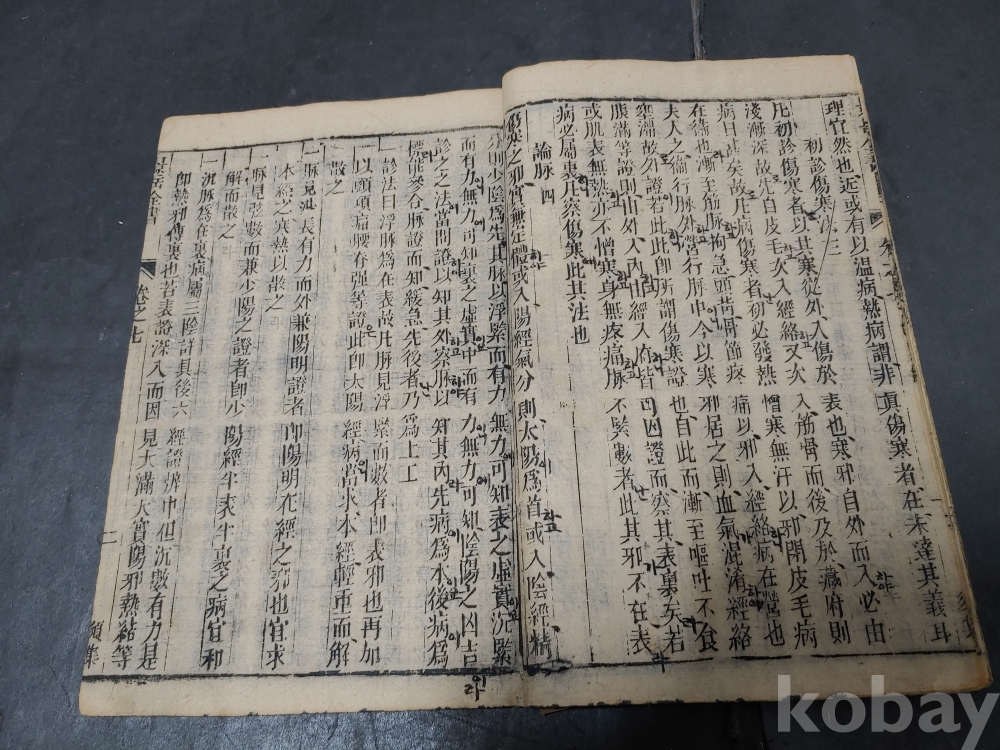 理宜然也近或有以温病熱病謂非眞傷寒者在未達其義耳
初診傷寒法三
凡初診傷寒者以其寒從外入傷於表也寒邪自外而入必由
淺漸深故先自皮毛次入經絡又次入筋骨而後及於藏府則
病日甚矣故凡病傷寒者初必發熱憎寒無汗以邪閉皮毛病
在衛也漸至筋脉拘急頭背骨節疼痛以邪入經絡病在營也
夫人之衛行脉外營行脉中今以寒邪居之則血氣混淆經絡
壅滯故外證若此此卽所謂傷寒證也自此而漸至嘔吐不食
脹滿等證則由外入內由經入府皆可因證而察其表裏矣若
或肌表無熱亦不憎寒身無疼痛脉不緊數者此其邪不在表
病必屬裏凡察傷寒此其法也
論脉 四
傷寒之邪實無定體或入陽經氣分則太陽爲首或入陰經精
分則少陰爲先其脉以浮緊而有力無力可知表之虛實沉緊
而有力無力可知裏之虛實中而有力無力可知陰陽之凶吉
診之之法當問證以知其外察脉以知其內先病爲本後病爲
標能參合脉證而知緩急先後者乃爲上工
一診法曰浮脉爲在表故凡脉見浮緊而數者卽表邪也再加
以頭項痛腰脊強等證此卽太陽經病當求本經輕重而解
散之
一脉見洪長有力而外兼陽明證者卽陽明在經之邪也宜求
本經之寒熱以散之
一脉見弦數而兼少陽之證者卽少陽經半表半裏之病宜和
解而散之
一沉脉爲在裏病屬三陰詳具後六經證辨中但沉數有力是
卽熱邪傳裏也若表證深入而因見大滿大實陽邪熱結等
卷之七 二 須集
kobay